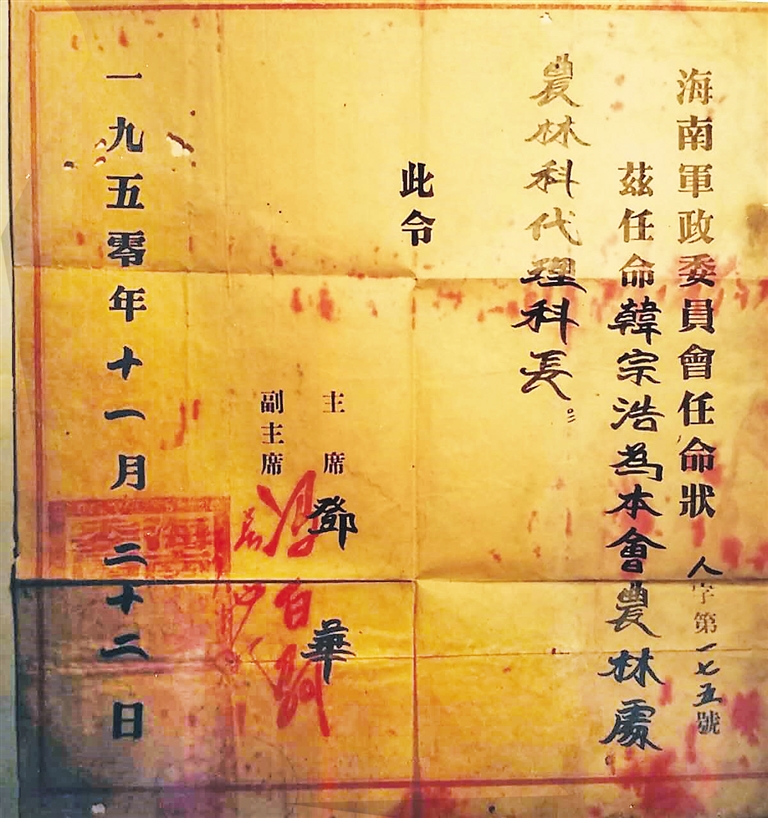 海南軍政委員會任命狀
人字第一七五號
茲任命韓宗浩為本會農林處
農林科代理科長。
此令
主席 鄧華
副主席 馮白駒
一九五零年十一月二十二日